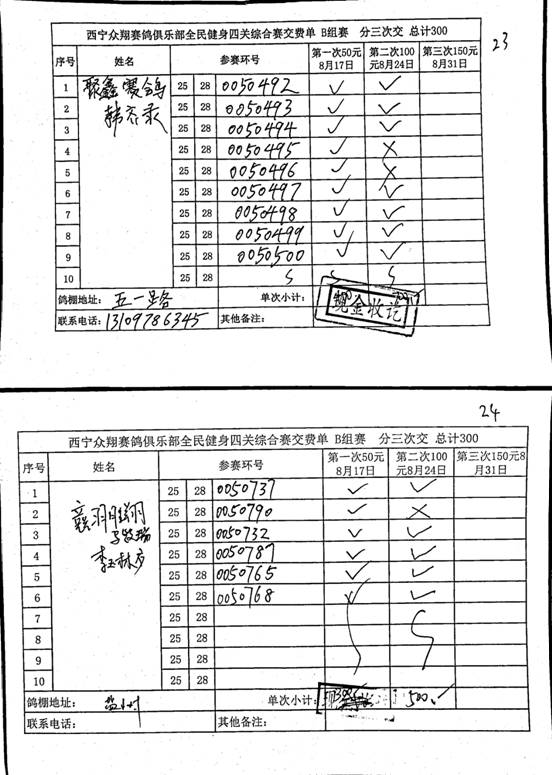 23
西宁众翔赛鸽俱乐部全民健身四关综合赛交费单 B组赛 分三次交 总计300
序号 姓名 参赛环号 第一次50元8月17日 第二次100元8月24日 第三次150元8月31日
1 聚鑫赛鸽 25 28 0050492 ✓ ✓
2 韩 25 28 0050493 ✓ ✓
3 25 28 0050494 ✓ ✓
4 25 28 0050495 ✓ ×
5 25 28 0050496 ✓ ×
6 25 28 0050497 ✓ ✓
7 25 28 0050498 ✓ ✓
8 25 28 0050499 ✓ ✓
9 25 28 0050500 ✓ ✓
10 25 28
鸽棚地址: 五一路 单次小计: 现金收讫
联系电话: 13109786345 其他备注:
24
西宁众翔赛鸽俱乐部全民健身四关综合赛交费单 B组赛 分三次交 总计300
序号 姓名 参赛环号 第一次50元8月17日 第二次100元8月24日 第三次150元8月31日
1 25 28 0050737 ✓ ✓
2 翔羽 25 28 0050790 ✓ ×
3 25 28 0050732 ✓ ✓
4 李玉林 25 28 0050787 ✓ ✓
5 25 28 0050765 ✓ ✓
6 25 28 0050768 ✓ ✓
7 25 28
8 25 28
9 25 28
10 25 28
鸽棚地址: 单次小计: 300 500
联系电话: 其他备注: